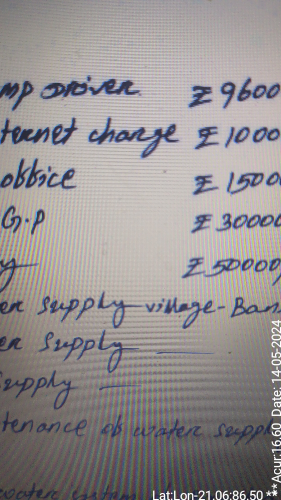 mp Driver ₹ 9600
ternet charge ₹ 1000
obbice ₹ 1500
G.P ₹ 30000
y ₹ 50000/
er supply village-Ban
er supply
supply
tenance ob water supply
water
Lat:Lon-21.06:86.50
**Acur:16.60 Date: 14-05-2024